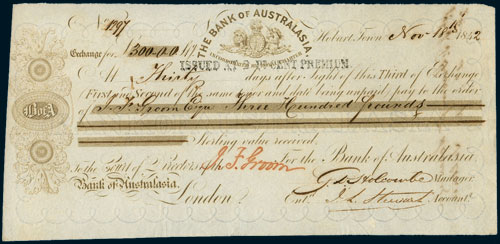 No. 1297
THE BANK OF AUSTRALASIA
Hobart Town Nov. 18th 1852
Exchange for £300.0.0
ISSUED AT 2 PER CENT PREMIUM.
At Thirty days after Sight of this Third of Exchange
First and Second of the same Tenor and date being unpaid, pay to the order
of J. F. Groom Esqr. Three Hundred pounds
Sterling value received.
BofA
To the Court of Directors of the For the Bank of Australasia
J. F. Groom
Bank of Australasia. Manager
London Entd. Accountt.